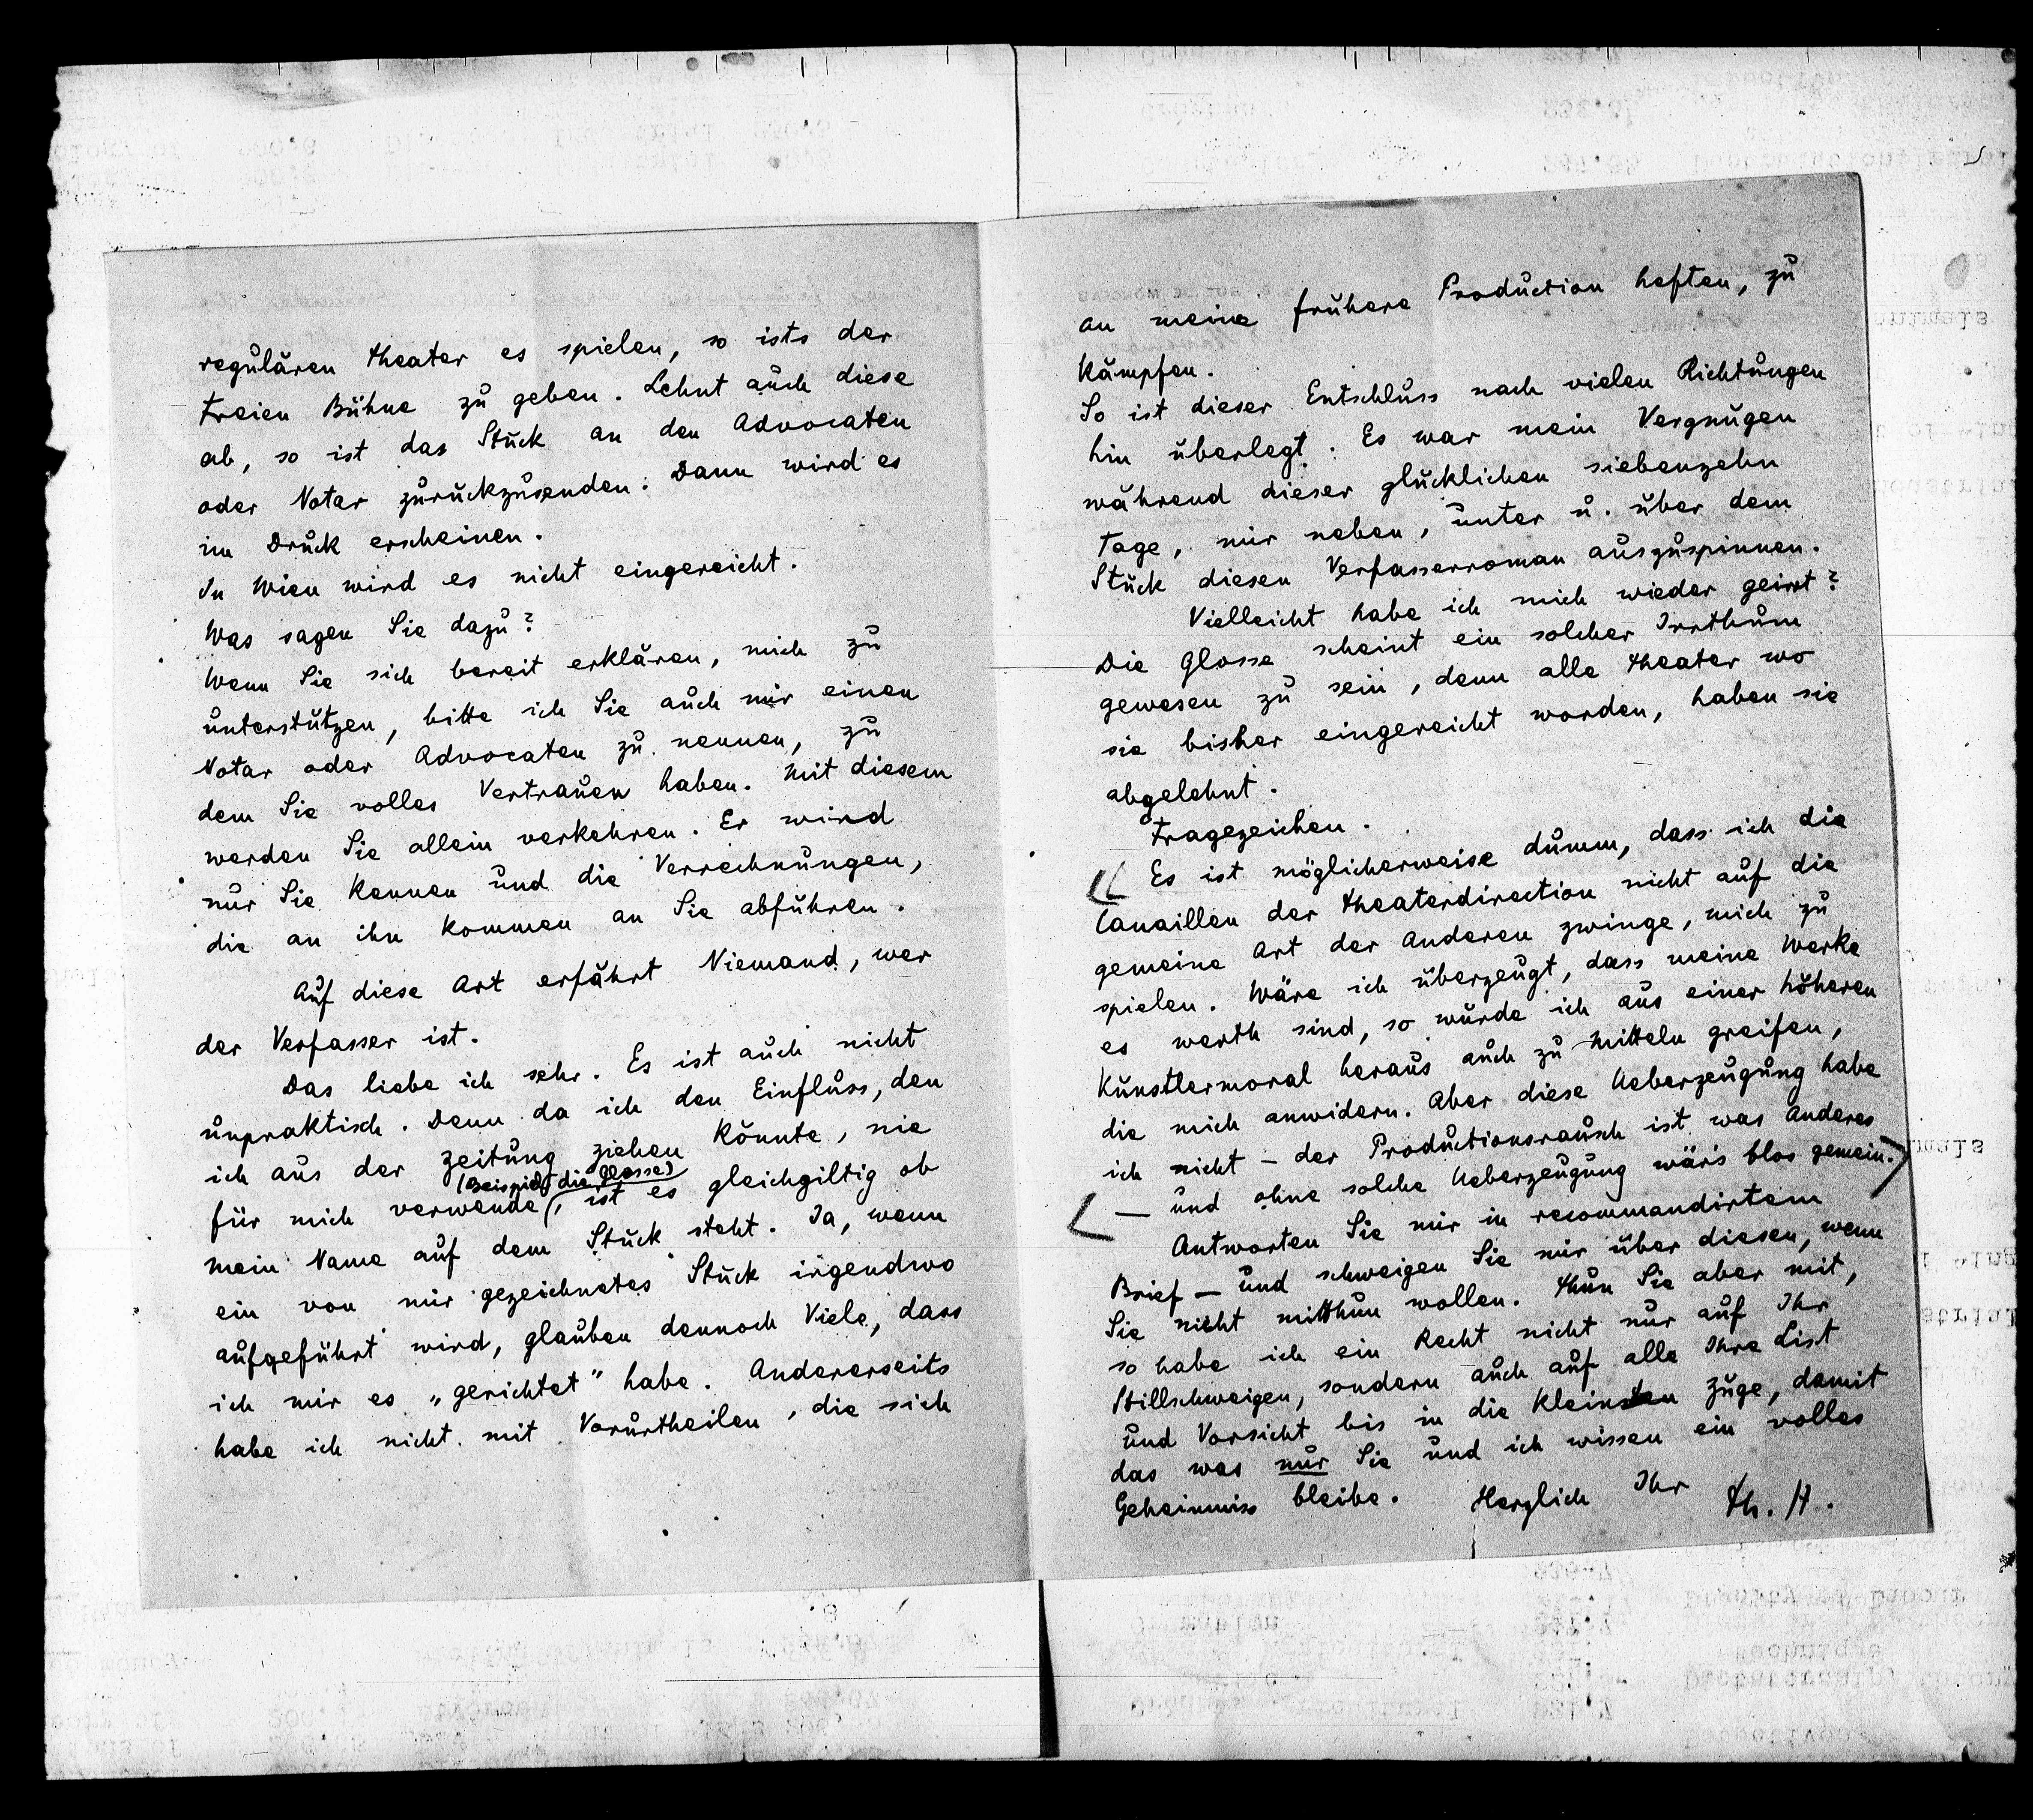 regulären Theater es spielen, so ists der
Freien Bühne zu geben. Lehnt auch diese
ab, so ist das Stück an den Advocaten
oder Notar zurückzusenden. Dann wird es
im Druck erscheinen.
In Wien wird es nicht eingereicht.
Was sagen Sie dazu?
Wenn Sie sich bereit erklären, mich zu
unterstützen, bitte ich Sie auch mir einen
Notar oder Advocaten zu nennen, zu
dem Sie volles Vertrauen haben. Mit diesem
werden Sie allein verkehren. Er wird
nur Sie kennen und die Verrechnungen,
die an ihn kommen an Sie abführen.
Auf diese Art erfährt Niemand, wer
der Verfasser ist.
Das liebe ich sehr. Es ist auch nicht
unpraktisch. Denn da ich den Einfluss, den
ich aus der Zeitung ziehen könnte, nie
(Beispiel die Glosse)
für mich verwende, ist es gleichgiltig ob
mein Name auf dem Stück steht. Ja, wenn
ein von mir gezeichnetes Stück irgendwo
aufgeführt wird, glauben dennoch Viele, dass
ich mir es „gerichtet“ habe. Andererseits
habe ich nicht mit Vorurtheilen, die sich
an meine frühere Production heften, zu
kämpfen.
So ist dieser Entschluss nach vielen Richtungen
hin überlegt. Es war mein Vergnügen
während dieser glücklichen siebenzehn
Tage, mir neben, unter u. über dem
Stück diesen Verfasserroman auszuspinnen.
Vielleicht habe ich mich wieder geirrt?
Die Glosse scheint ein solcher Irrthum
gewesen zu sein, denn alle Theater wo
sie bisher eingereicht worden, haben sie
abgelehnt.
Fragezeichen.
Es ist möglicherweise dumm, dass ich die
Canaillen der Theaterdirection nicht auf die
gemeine Art der Anderen zwinge, mich zu
spielen. Wäre ich überzeugt, dass meine Werke
es werth sind, so würde ich aus einer höheren
Künstlermoral heraus auch zu Mitteln greifen,
die mich anwidern. Aber diese Ueberzeugung habe
ich nicht – der Productionsrausch ist was Anderes
– und ohne solche Ueberzeugung wär's blos gemein.
Antworten Sie mir in recommandirtem
Brief – und schweigen Sie mir über diesen, wenn
Sie nicht mitthun wollen. Thun Sie aber mit,
so habe ich ein Recht nicht nur auf Ihr
Stillschweigen, sondern auch auf alle Ihre List
und Vorsicht bis in die kleinsten Züge, damit
das was nur Sie und ich wissen ein volles
Geheimniss bleibe. Herzlich Ihr
Th. H.